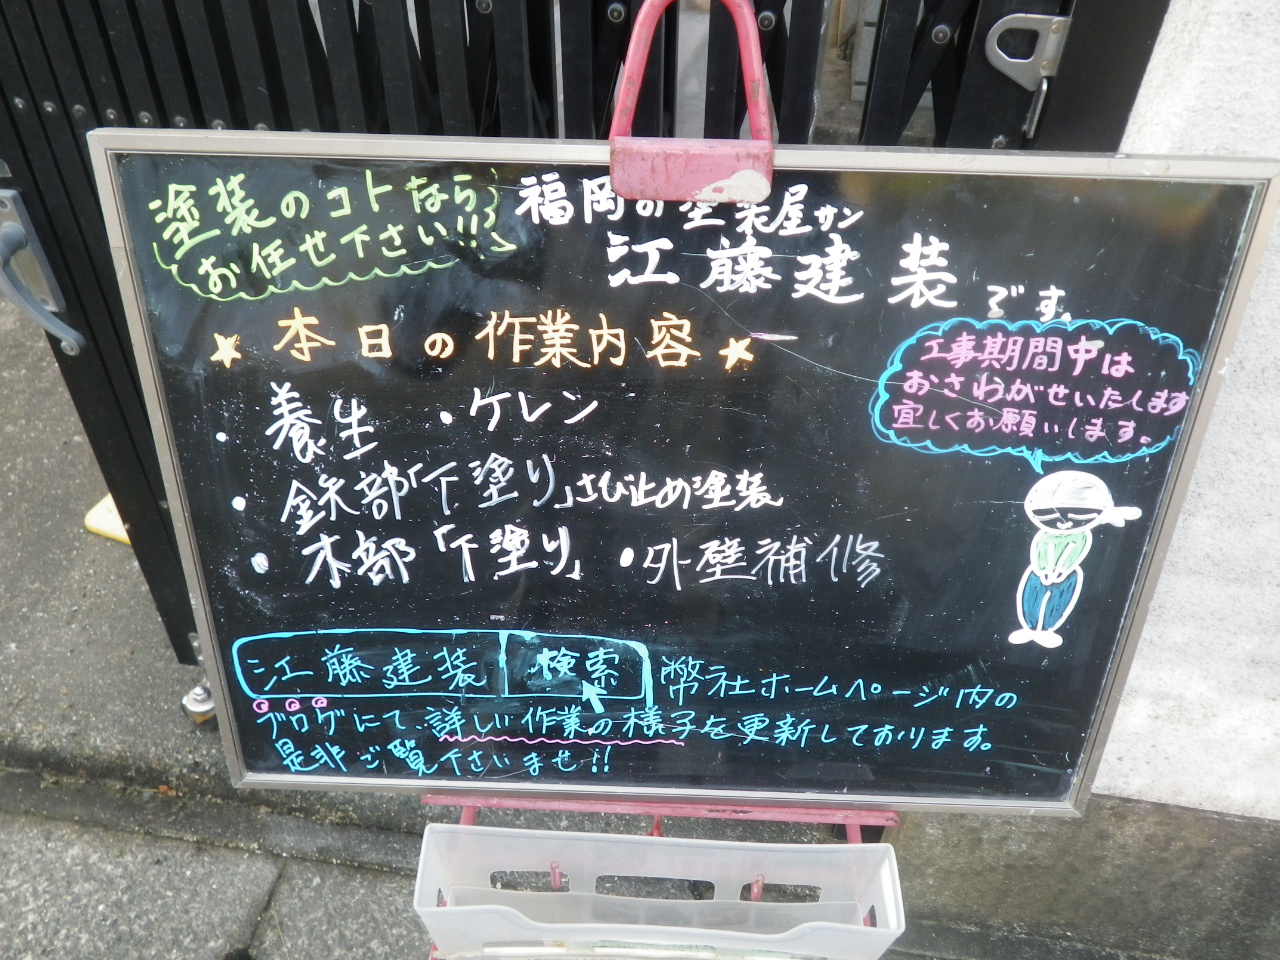 塗装のコトなら
お任せ下さい!!
福岡の塗装屋サン
江藤建装です。
★本日の作業内容★
・養生 ・ケレン
・鉄部「下塗り」さび止め塗装
・木部「下塗り」 ・外壁補修
工事期間中は
おさわがせいたします
宜しくお願いします。
江藤建装 検索 弊社ホームページ内の
ブログにて、詳しい作業の様子を更新しております。
是非ご覧下さいませ!!